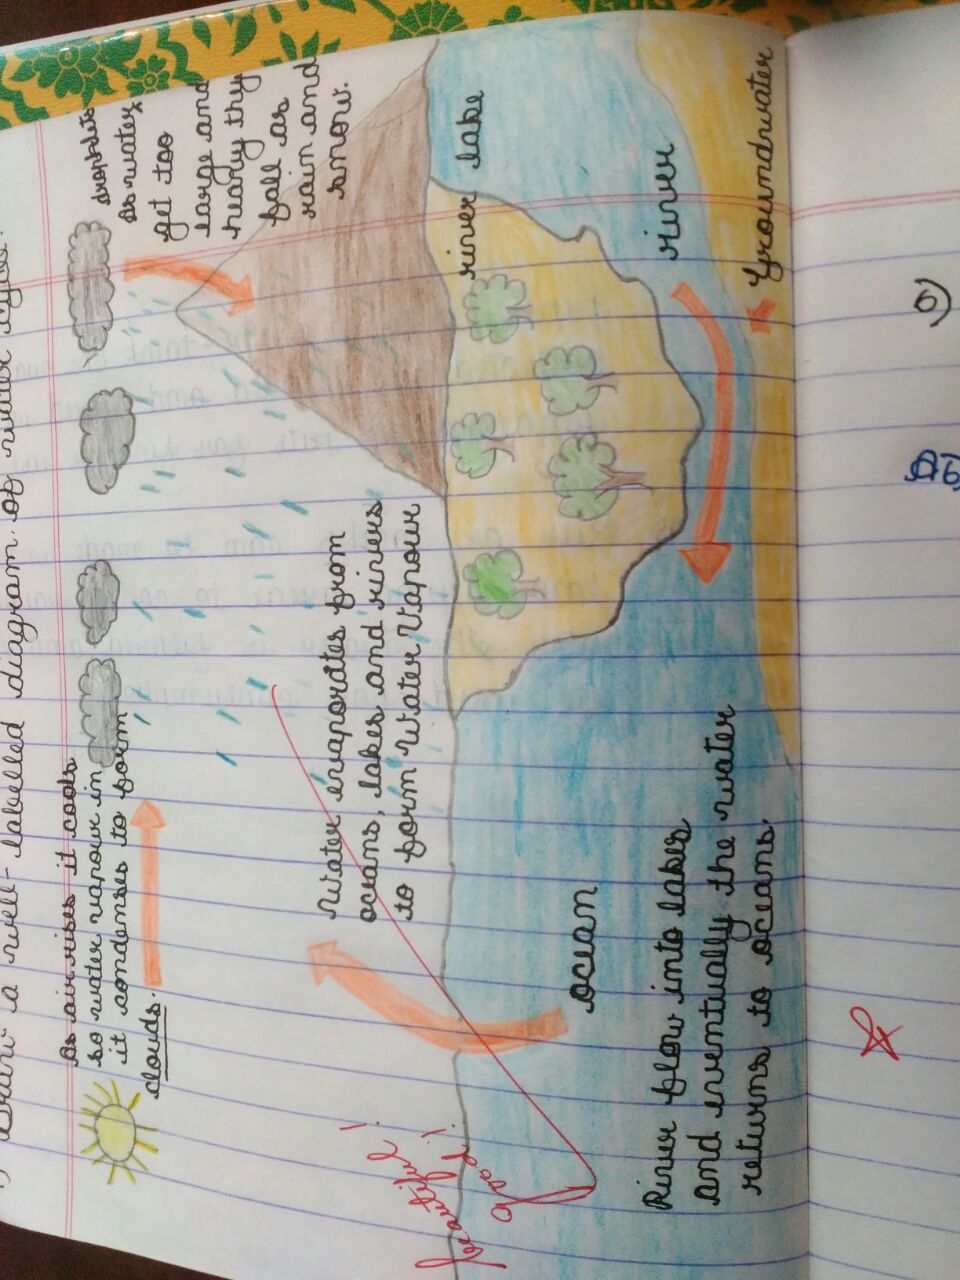 Draw a well-labelled diagram of water cycle.
As air rises it cools
so water vapour in
it condenses to form
clouds.
droplets
As water
get too
large and
heavy they
fall as
rain and
snow.
Water evaporates from
oceans, lakes and rivers
to form Water Vapour
river lake
ocean
river
Groundwater
River flow into lakes
and eventually the water
returns to oceans.
beautiful!
Good!